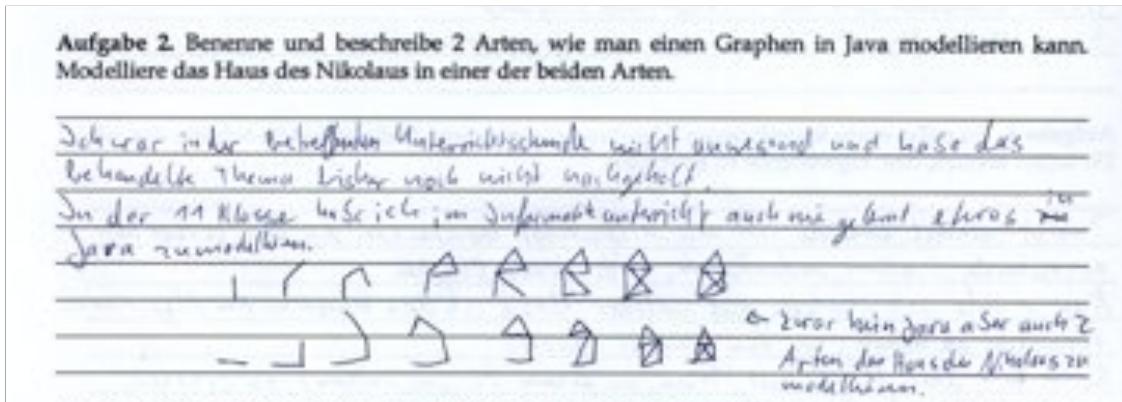 Aufgabe 2. Benenne und beschreibe 2 Arten, wie man einen Graphen in Java modellieren kann.
Modelliere das Haus des Nikolaus in einer der beiden Arten.
Ich war in der betreffenden Unterrichtsstunde nicht anwesend und habe das
behandelte Thema bisher noch nicht nachgeholt.
In der 11 Klasse habe ich im Informatikunterricht auch nie gelernt etwas in
Java zu modellieren.
← Zwar kein Java aber auch 2
Arten das Haus des Nikolaus zu
modellieren.